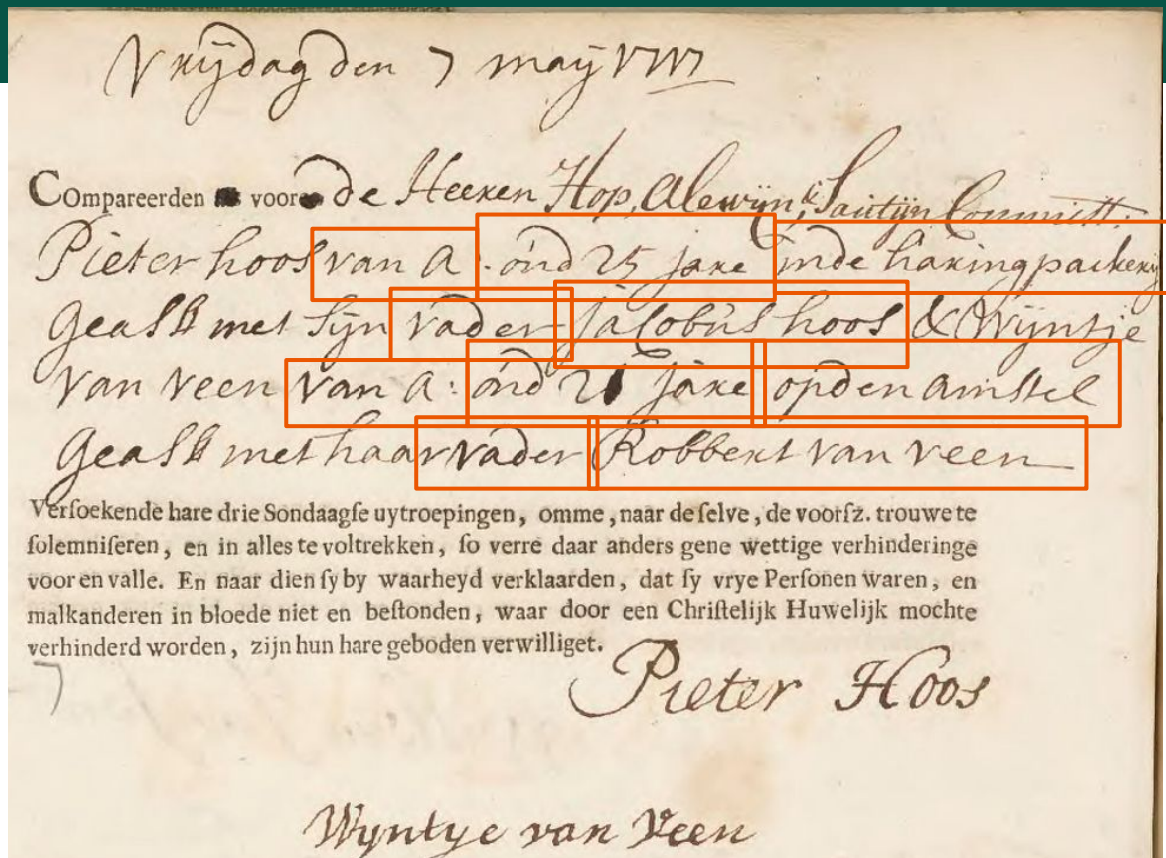 Vrijdag den 7 maij 1717
Compareerden voor de Heeren Hop, Alewijn, & Sautijn Commiss.
Pieter hoos van A: oud 25 jare inde haringpackerij
Geass met sijn vader jacobus hoos & Wijntje
van veen van A: oud 21 jare op den amstel
Geass met haar vader Robbert van veen
Versoekende hare drie Sondaagse uytroepingen, omme, naar de selve, de voorsz. trouwe te
solemniseren, en in alles te voltrekken, so verre daar anders gene wettige verhinderinge
voor en valle. En naar dien sy by waarheyd verklaarden, dat sy vrye Personen waren, en
malkanderen in bloede niet en bestonden, waar door een Christelijk Huwelijk mochte
verhinderd worden, zijn hun hare geboden verwilliget.
7
Pieter Hoos
Wyntye van Veen